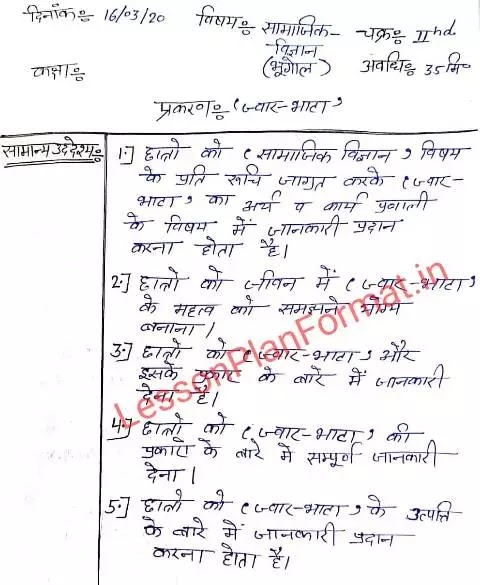 दिनांक:- 16/03/20 विषय:- सामाजिक- चक्र:- IInd.
विज्ञान
(भूगोल) अवधि:- 35 मि॰
कक्षा:-
प्रकरण:- ‘ज्वार-भाटा’
सामान्य उद्देश्य:- 1.] छात्रो को ‘सामाजिक विज्ञान’ विषय
के प्रति रूचि जागृत करके ‘ज्वार-
भाटा’ का अर्थ व कार्य प्रणाली
के विषय में जानकारी प्रदान
करना होता है।
2.] छात्रो को जीवन में ‘ज्वार-भाटा’
के महत्व को समझने योग्य
बनाना।
3.] छात्रो को ‘ज्वार-भाटा’ और
इसके प्रकार के बारे में जानकारी
देना है।
4.] छात्रो को ‘ज्वार-भाटा’ की
प्रकारो के बारे में सम्पूर्ण जानकारी
देना।
5.] छात्रो को ‘ज्वार-भाटा’ के उत्पति
के बारे में जानकारी प्रदान
करना होता है।
LessonPlanFormat.in